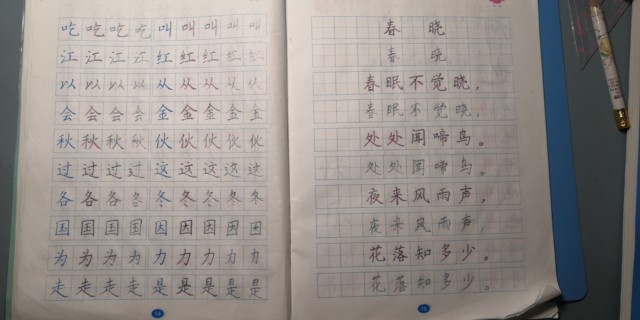 吃吃吃吃叫叫叫叫叫
江江江江红红红红红
以以以以从从从从从
会会会会金金金金金
秋秋秋秋伙伙伙伙伙
过过过过这这这这这
各各各各冬冬冬冬冬
国国国国因因因因因
为为为为力力力力力
走走走走是是是是是
14
春 晓
春 晓
春眠不觉晓，
春眠不觉晓，
处处闻啼鸟。
处处闻啼鸟。
夜来风雨声，
夜来风雨声，
花落知多少。
花落知多少。
15